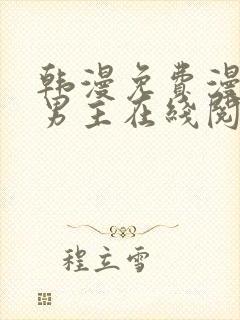 韩漫免费漫
男主在线阅
程立雪